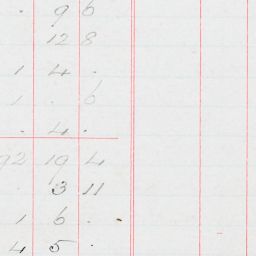 . 9 6
12 8
1 4 .
1 . 6
. 4 .
92 19 4
. 3 11
1 6 .
4 5 .